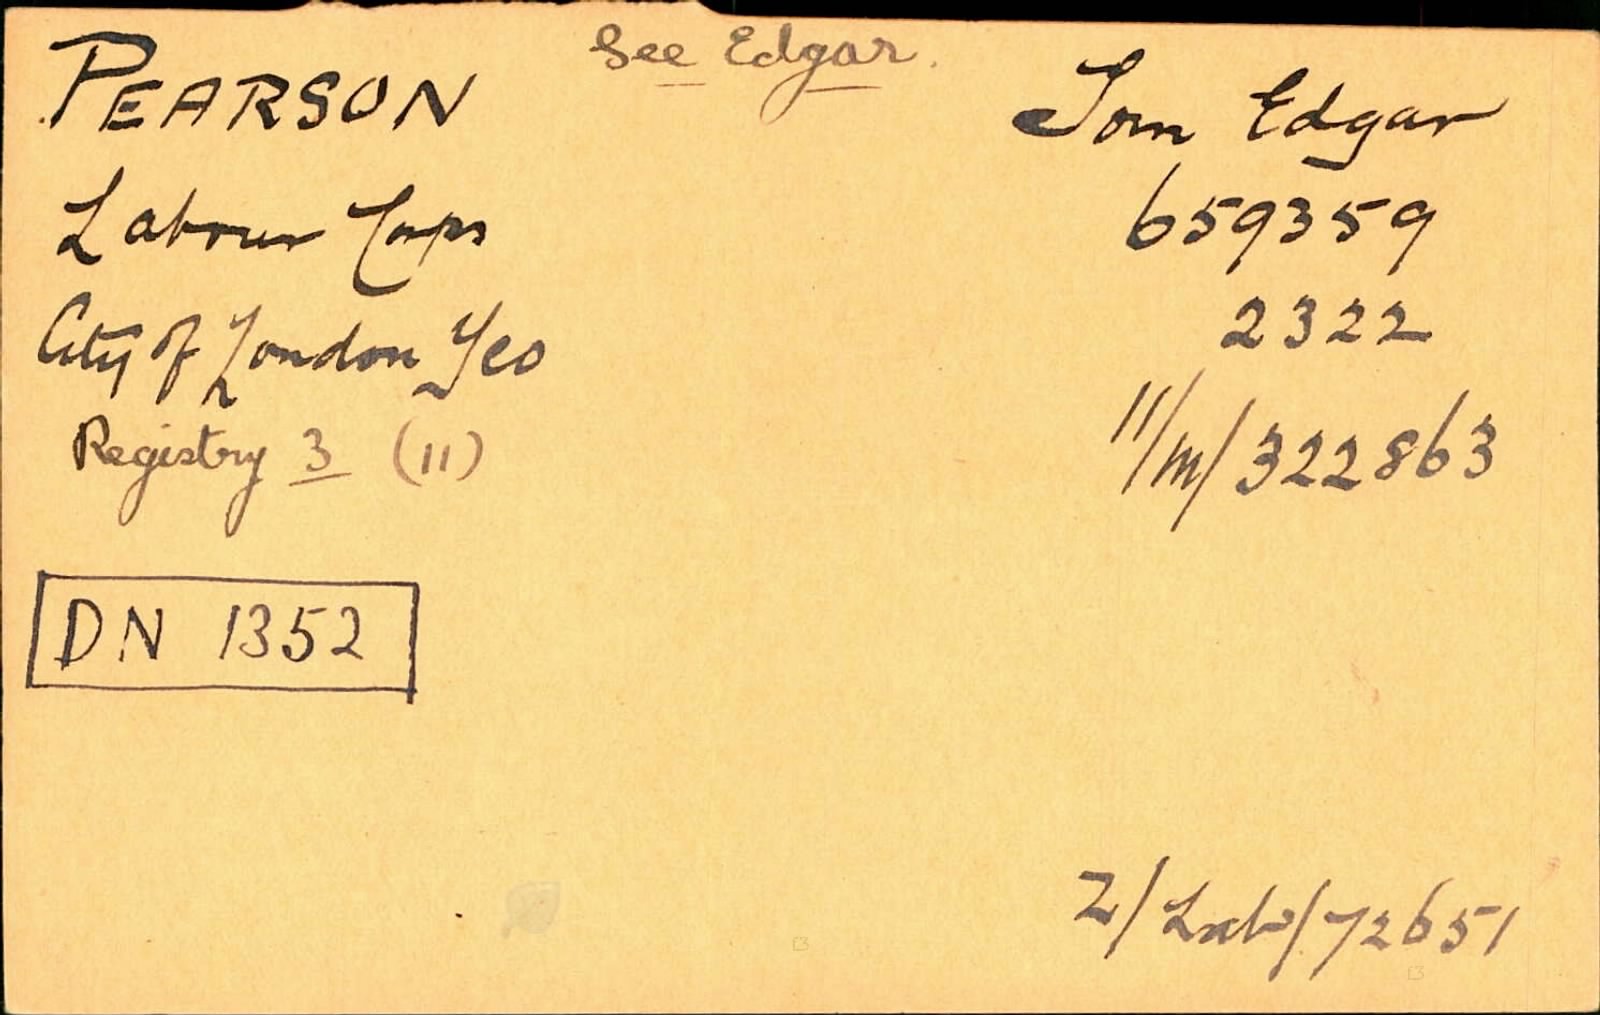 See Edgar.
PEARSON Tom Edgar
Labour Corps 659359
City of London Yeo 2322
Registry 3 (11) 11/M/322863
DN 1352
Z/Lab/72651